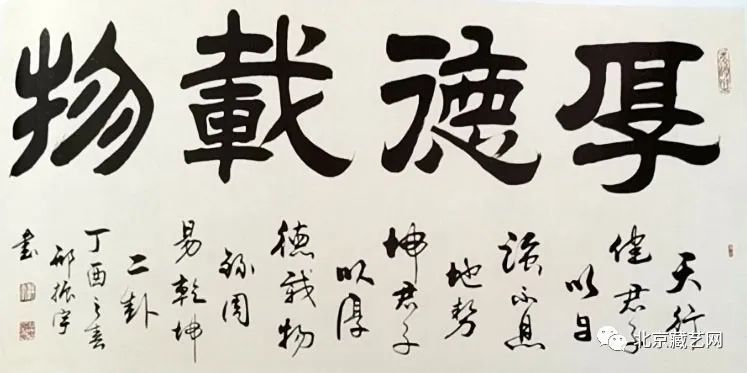 厚德載物
天行
健君子
以自
強不息
地勢
坤君子
以厚
德載物
錄周
易乾坤
二卦
丁酉之春
振宇
書
北京藏艺网